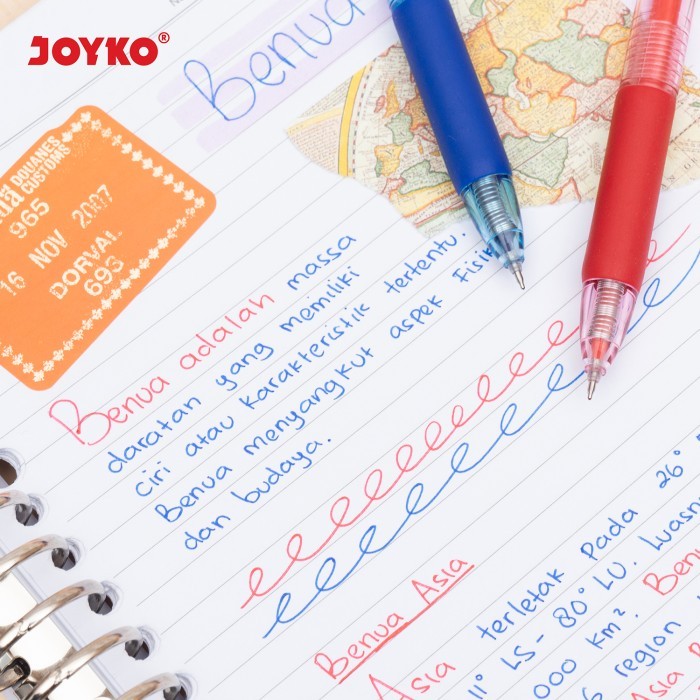 JOYKO®
Benua
DOUANES
CUSTOMS
965
16 NOV 2007
DORVAL
693
Benua adalah massa
daratan yang memiliki
ciri atau karakteristik tertentu.
Benua menyangkut aspek Fisik
dan budaya.
Benua Asia
Asia terletak Pada 26°
11° LS - 80° LU. Luasn
000 km². Benu
6 region